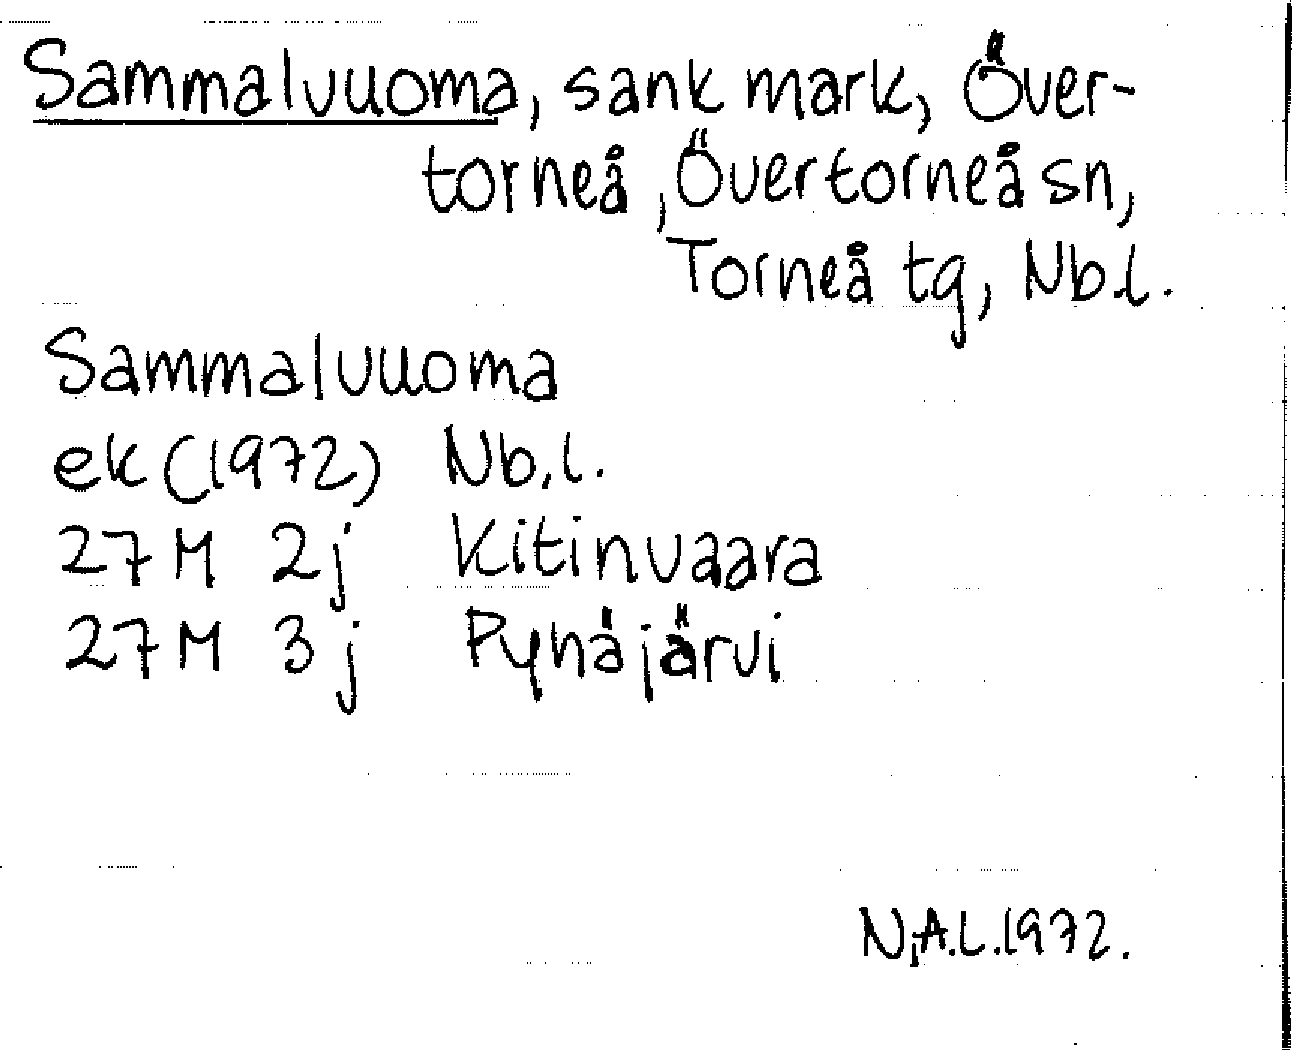 Sammalvuoma, sank mark, Över-
torneå, Övertorneå sn,
Torneå tg, Nb.l.
Sammalvuoma
ek (1972) Nb.l.
27M 2j Kitinvaara
27M 3j Pyhäjärvi
N.A.L. 1972.